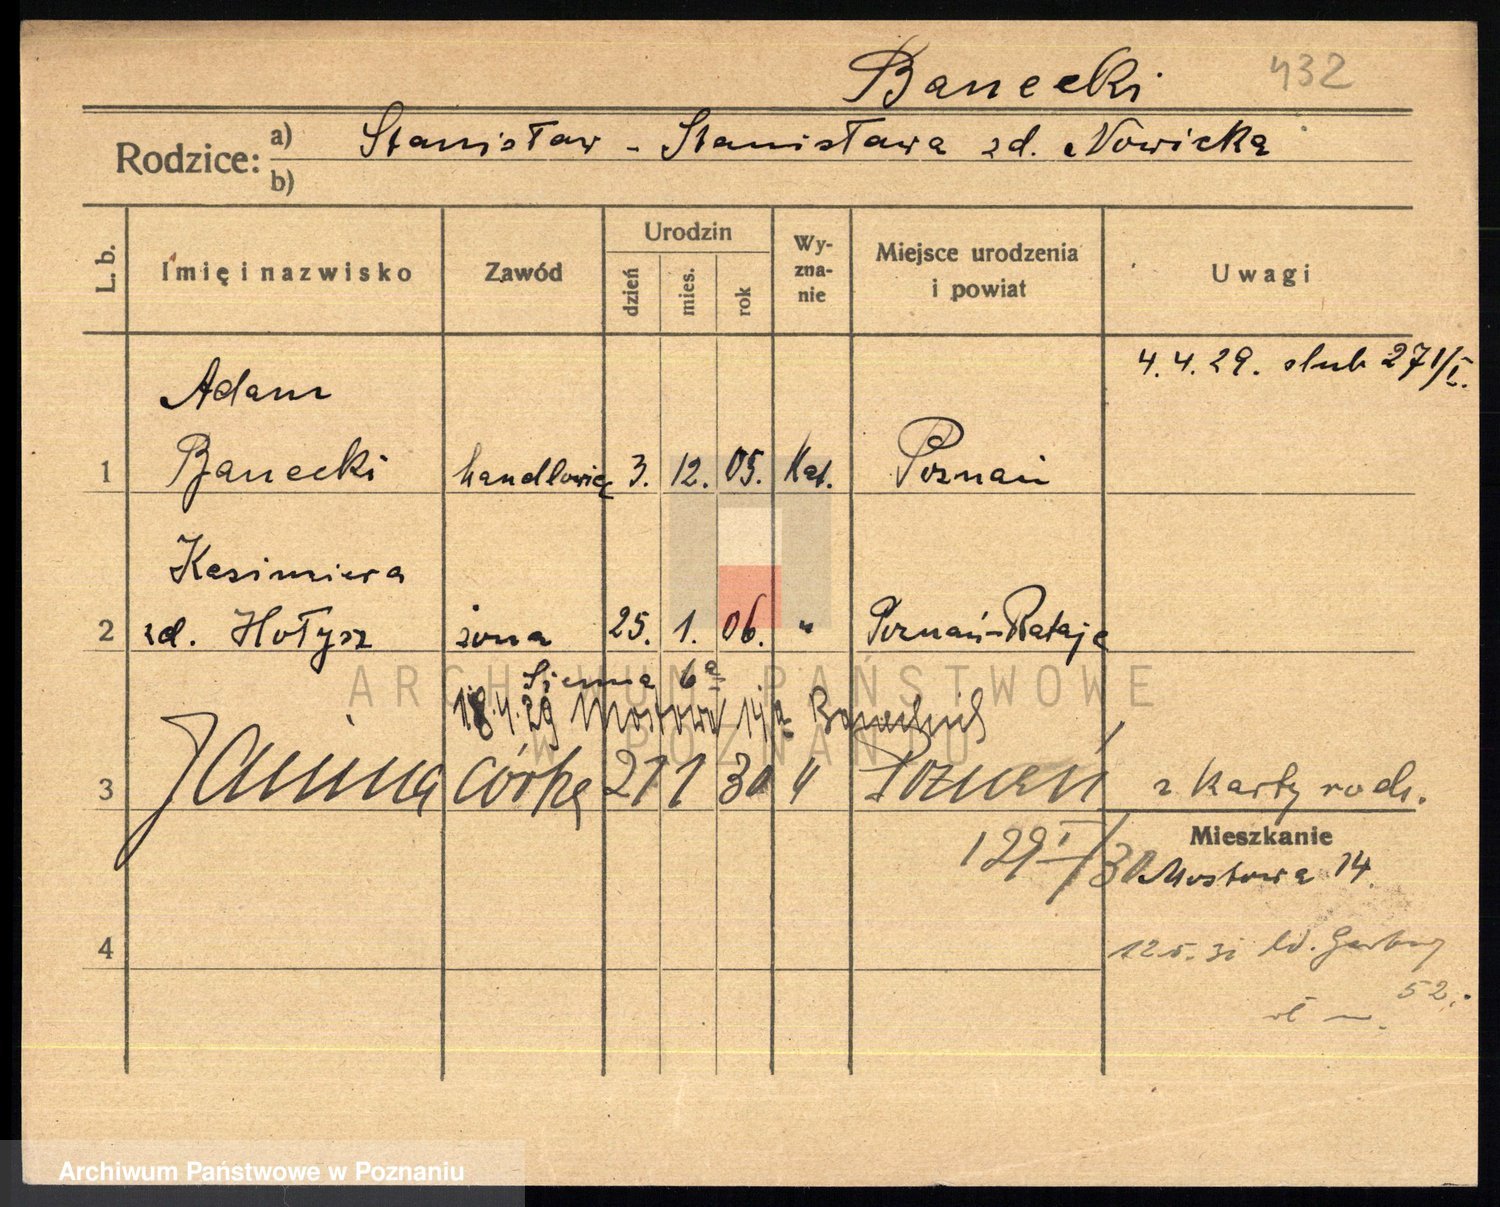 Banecki 432
Rodzice: a) Stanisław - Stanisława zd. Nowicka
b)
L. b. Imię i nazwisko Zawód Urodzin dzień mies. rok Wy-zna-nie Miejsce urodzenia i powiat Uwagi
4. 4. 29. slub 271/I.
Adam
1 Banecki handlowiec 3. 12. 05. Kat. Poznań
Kazimiera
2 zd. Hołysz żona 25. 1. 06. " Poznań-Rataje
Sienna 6a
18.4.29 Mostowa 14
3 Janina córka 21 1 30 " Poznań z Karty rodz.
129 I/30
Mieszkanie
Mostowa 14.
4
12 5. 31 Garbary
52.
ARCHIWUM PAŃSTWOWE
W POZNANIU
Archiwum Państwowe w Poznaniu